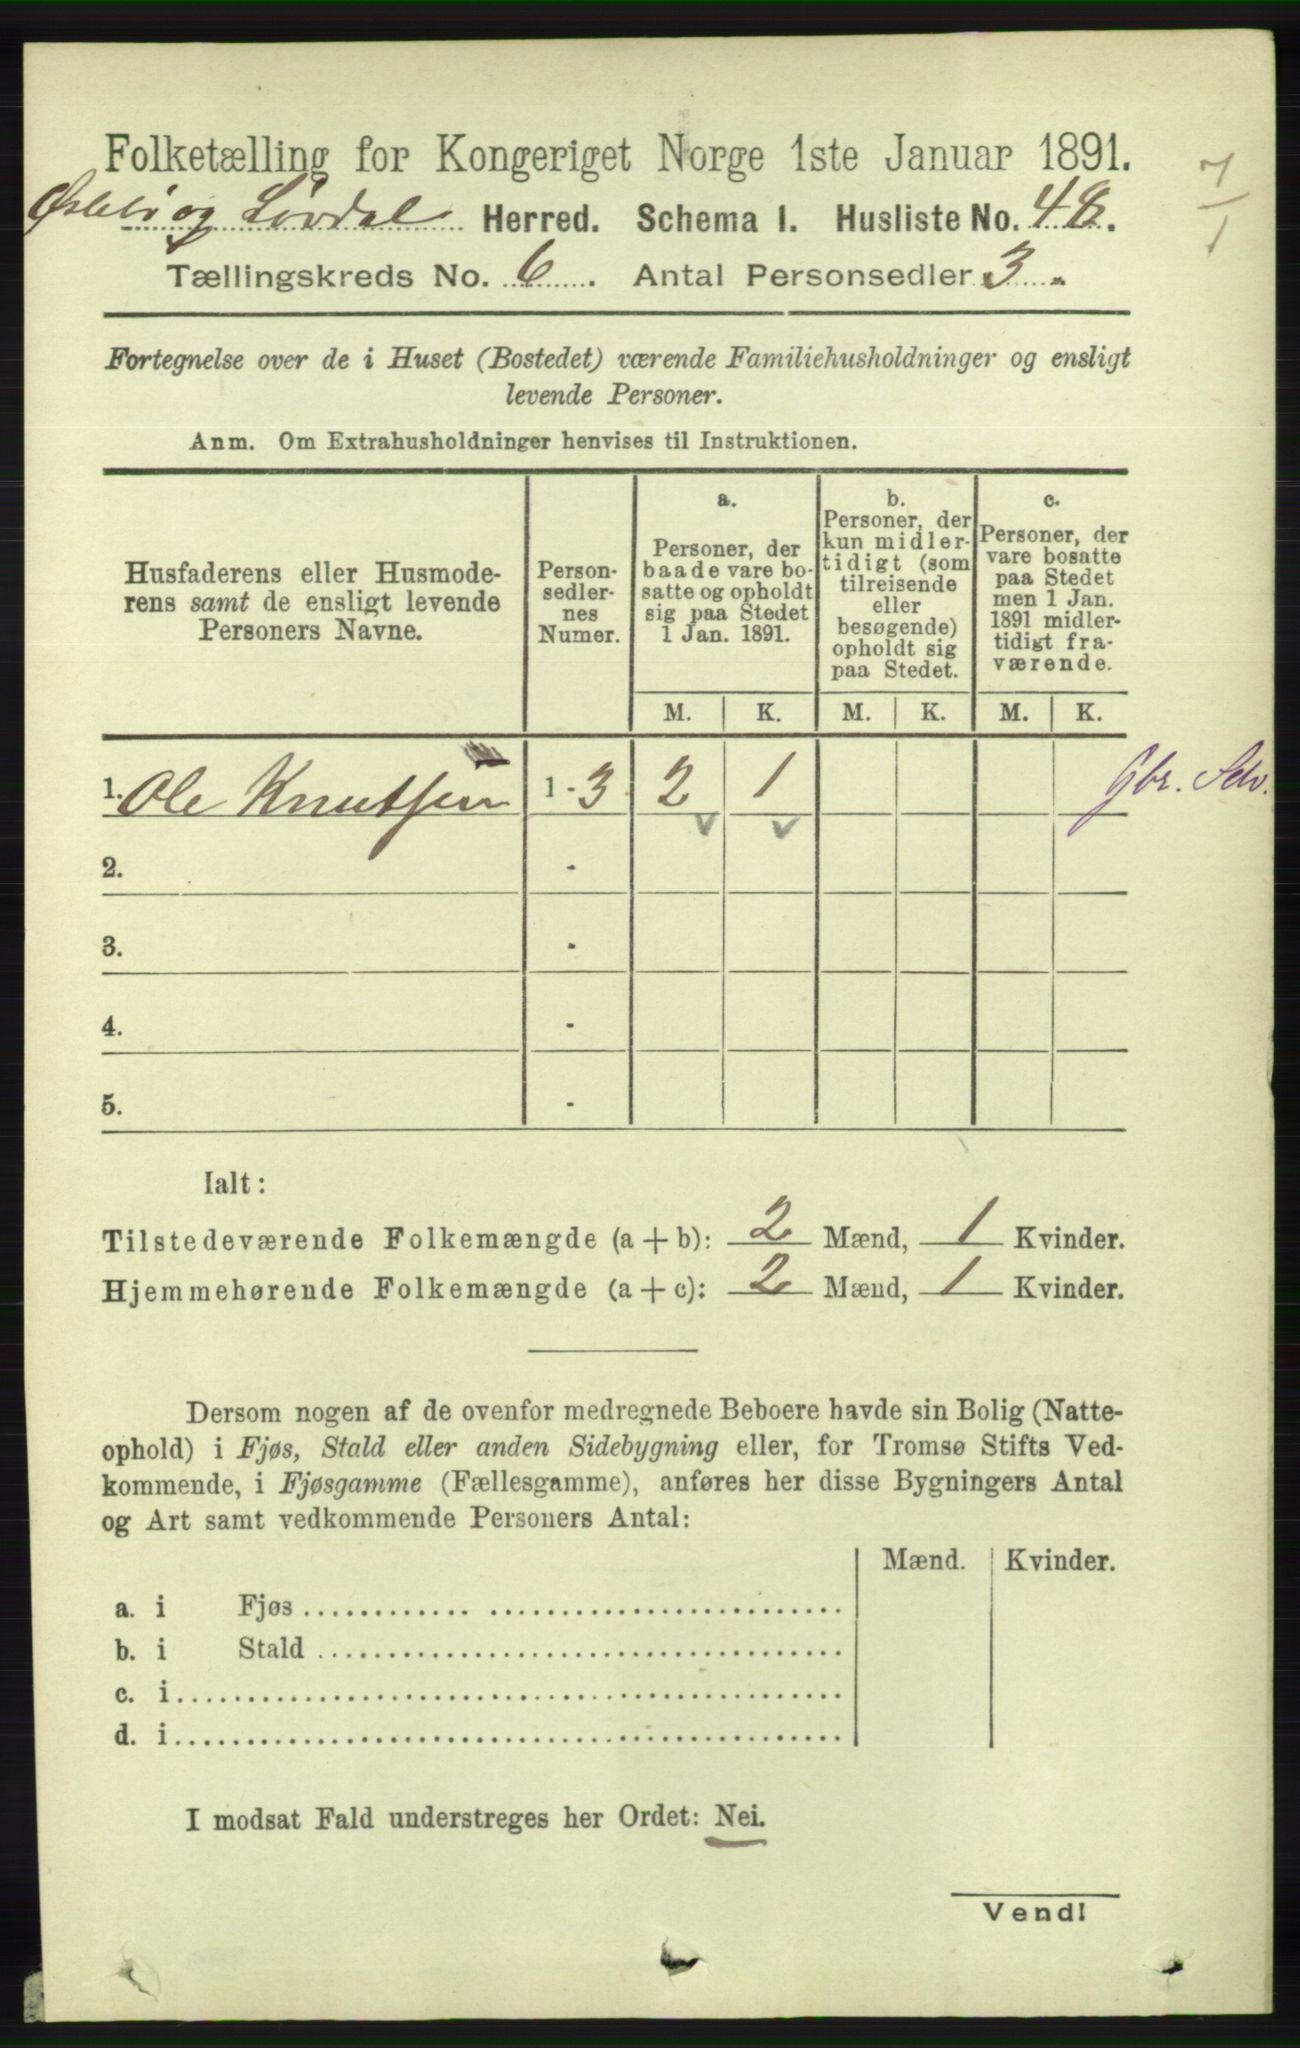 Folketælling for Kongeriget Norge 1ste Januar 1891.
og Løvdal Herred. Schema I. Husliste No. 48.
7/1
Tællingskreds No. 6. Antal Personsedler 3.
Fortegnelse over de i Huset (Bostedet) værende Familiehusholdninger og ensligt
levende Personer.
Anm. Om Extrahusholdninger henvises til Instruktionen.
Husfaderens eller Husmode-
rens samt de ensligt levende
Personers Navne.
Person-
sedler-
nes
Numer.
a.
Personer, der
baade vare bo-
satte og opholdt
sig paa Stedet
1 Jan. 1891.
b.
Personer, der
kun midler-
tidigt (som
tilreisende
eller
besøgende)
opholdt sig
paa Stedet.
c.
Personer, der
vare bosatte
paa Stedet
men 1 Jan.
1891 midler-
tidigt fra-
værende.
M. K. M. K. M. K.
1. Ole Knutsen 1 - 3 2 1 Gbr. Selv.
2. -
3. -
4. -
5. -
Ialt:
Tilstedeværende Folkemængde (a + b): 2 Mænd, 1 Kvinder.
Hjemmehørende Folkemængde (a + c): 2 Mænd, 1 Kvinder.
Dersom nogen af de ovenfor medregnede Beboere havde sin Bolig (Natte-
ophold) i Fjøs, Stald eller anden Sidebygning eller, for Tromsø Stifts Ved-
kommende, i Fjøsgamme (Fællesgamme), anføres her disse Bygningers Antal
og Art samt vedkommende Personers Antal:
Mænd. Kvinder.
a. i Fjøs
b. i Stald
c. i
d. i
I modsat Fald understreges her Ordet: Nei.
Vend!